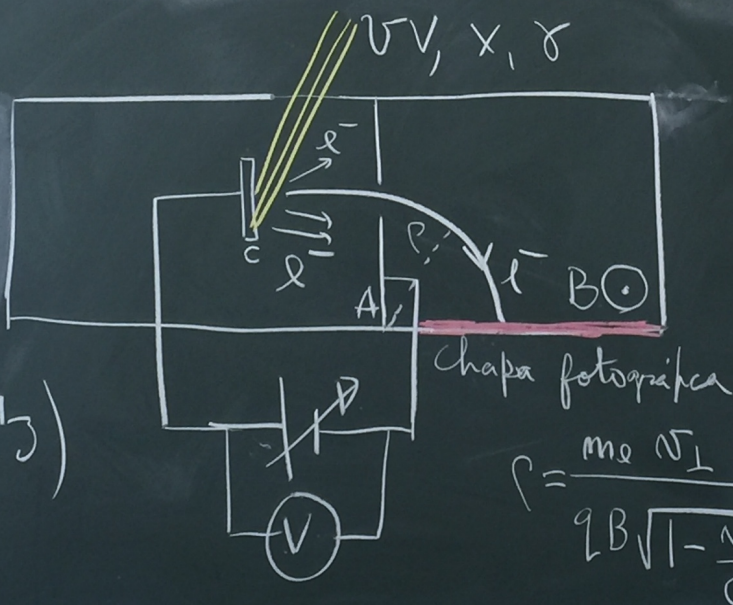 UV, X, γ
e⁻
C
e⁻
ρ
e⁻
A
B⊙
chapa fotográfica
3)
V
ρ = me v⊥
qB√1 - v
c